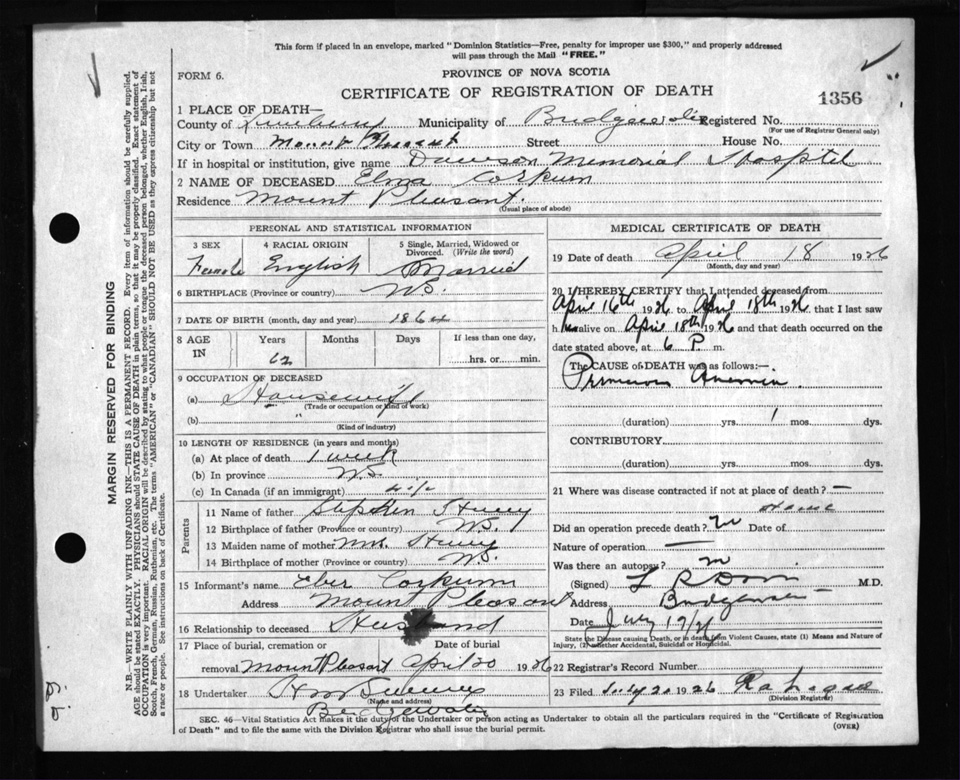 This form if placed in an envelope, marked "Dominion Statistics—Free, penalty for improper use $300," and properly addressed
will pass through the Mail "FREE."
FORM 6.
PROVINCE OF NOVA SCOTIA
CERTIFICATE OF REGISTRATION OF DEATH
1356
1 PLACE OF DEATH—
County of Lunenburg Municipality of Registered No.
(For use of Registrar General only)
City or Town Mount Pleasant Street House No.
If in hospital or institution, give name Dawson Memorial Hospital
2 NAME OF DECEASED Elna Corkum
Residence Mount Pleasant.
(Usual place of abode)
PERSONAL AND STATISTICAL INFORMATION
3 SEX 4 RACIAL ORIGIN 5 Single, Married, Widowed or
Divorced. (Write the word)
Female English Married
6 BIRTHPLACE (Province or country) N.S.
7 DATE OF BIRTH (month, day and year) 1864
8 AGE IN Years Months Days If less than one day,
62 hrs. or min.
9 OCCUPATION OF DECEASED
(a) Housewife
(Trade or occupation or kind of work)
(b) "
(Kind of industry)
10 LENGTH OF RESIDENCE (in years and months)
(a) At place of death 1 week
(b) In province N.S.
(c) In Canada (if an immigrant)
Parents
11 Name of father Stephen
12 Birthplace of father (Province or country) N.S.
13 Maiden name of mother
14 Birthplace of mother (Province or country) N.S.
15 Informant's name Eber Corkum
Address Mount Pleasant
16 Relationship to deceased Husband
17 Place of burial, cremation or Date of burial
removal Mount Pleasant April 20 1926
18 Undertaker
(Name and address)
Bridgewater
MEDICAL CERTIFICATE OF DEATH
19 Date of death April 18 1926
(Month, day and year)
20 I HEREBY CERTIFY that I attended deceased from
April 16th 1926 to April 18th 1926 that I last saw
her alive on April 18th 1926 and that death occurred on
date stated above, at 6 P. m.
The CAUSE of DEATH was as follows:—
Pernicious Anemia
(duration) yrs. 1 mos. dys.
CONTRIBUTORY
(duration) yrs. mos. dys.
21 Where was disease contracted if not at place of death? —
Home
Did an operation precede death? no Date of
Nature of operation —
Was there an autopsy? no
(Signed) M.D.
Address Bridgewater
Date July 19/26
State the Disease causing Death, or in death from Violent Causes, state (1) Means and Nature of
Injury, (2) whether Accidental, Suicidal or Homicidal.
22 Registrar's Record Number
23 Filed July 20 1926
(Division Registrar)
SEC. 46—Vital Statistics Act makes it the duty of the Undertaker or person acting as Undertaker to obtain all the particulars required in the "Certificate of Registration
of Death" and to file the same with the Division Registrar who shall issue the burial permit.
(OVER)
MARGIN RESERVED FOR BINDING
N.B.—WRITE PLAINLY WITH UNFADING INK—THIS IS A PERMANENT RECORD. Every item of information should be carefully supplied.
AGE should be stated EXACTLY. PHYSICIANS should STATE CAUSE OF DEATH in plain terms, so that it may be properly classified. Exact statement of
OCCUPATION is very important. RACIAL ORIGIN will be described by stating to what people or tongue the deceased person belonged, whether English, Irish,
Scotch, French, German, Russian, Ruthenian, etc. The terms "AMERICAN" or "CANADIAN" SHOULD NOT BE USED as they express citizenship but not
a race or people. See instructions on back of Certificate.